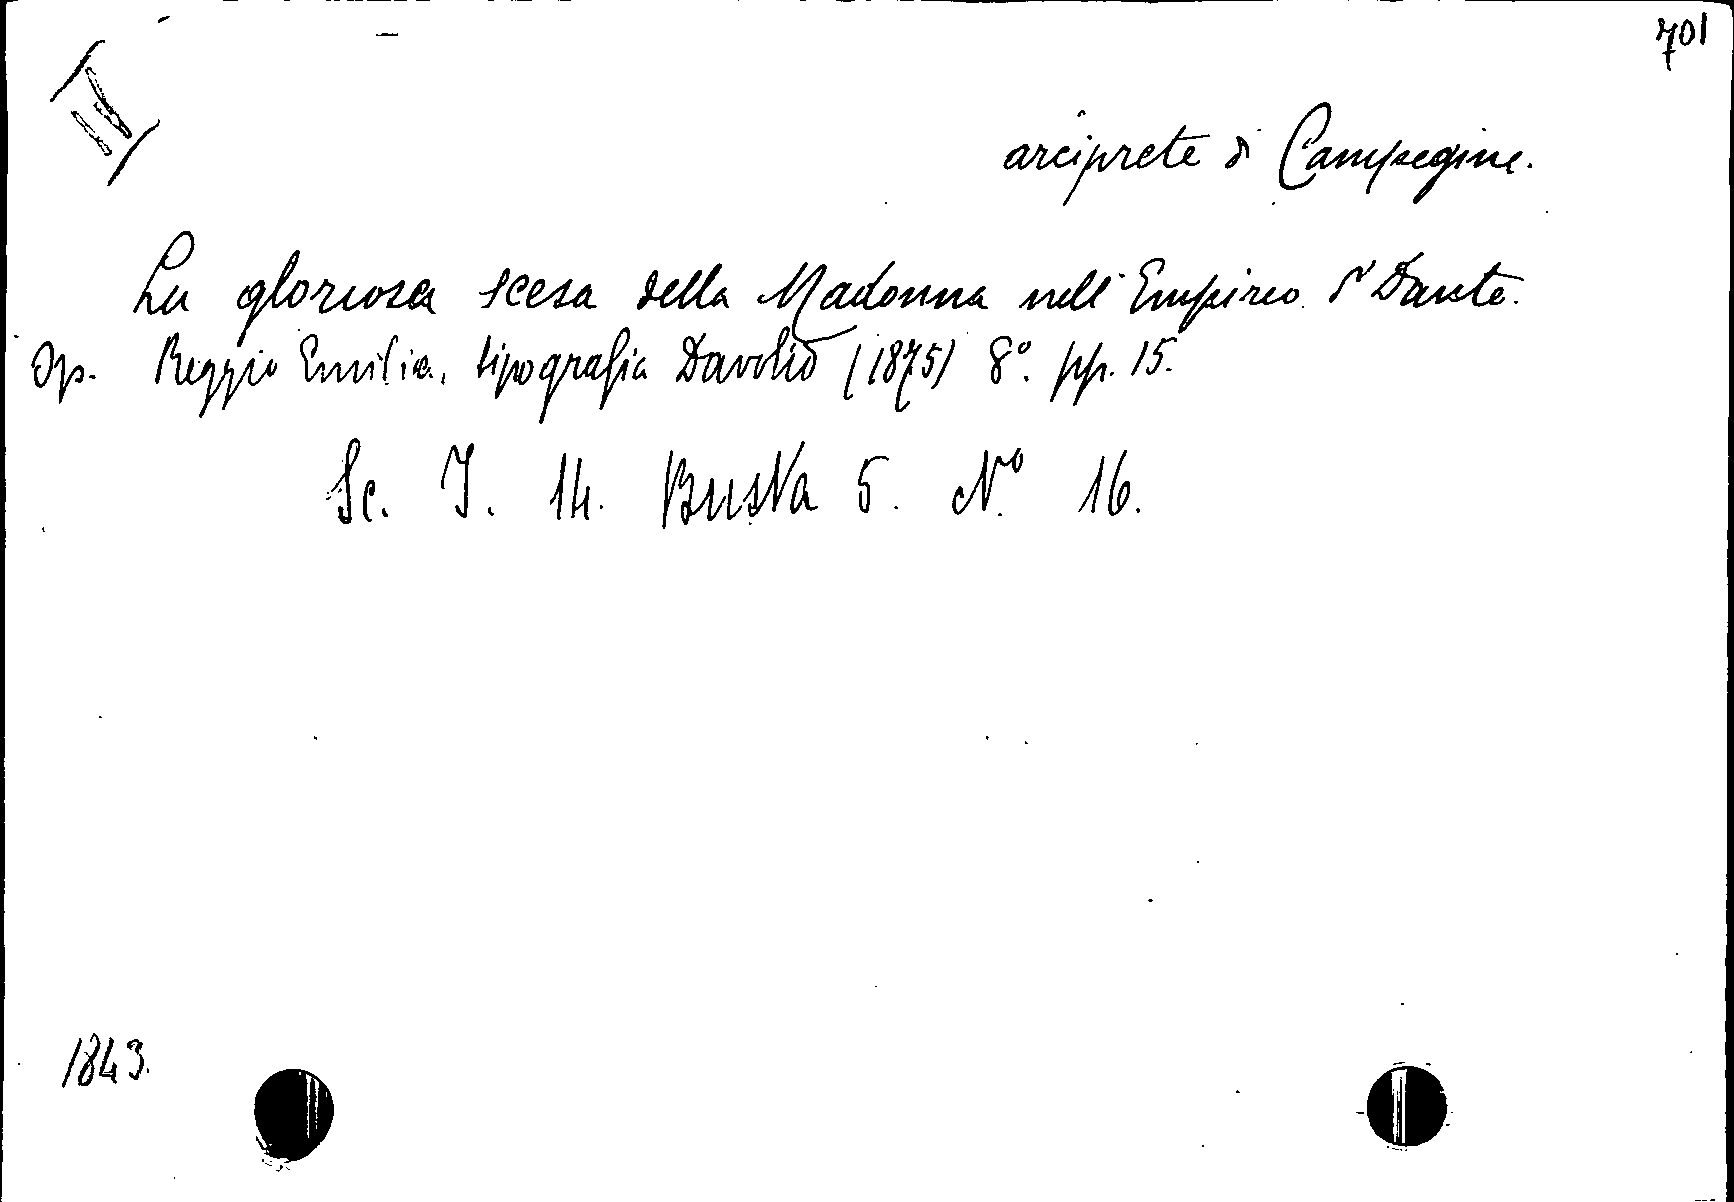 701
II
arciprete di Campegine.
La gloriosa scesa della Madonna nell'Empireo di Dante.
Op. Reggio Emilia, tipografia Davolio (1875) 8°. pp. 15.
Sc. I. 14. Busta 5. N.° 16.
1843.